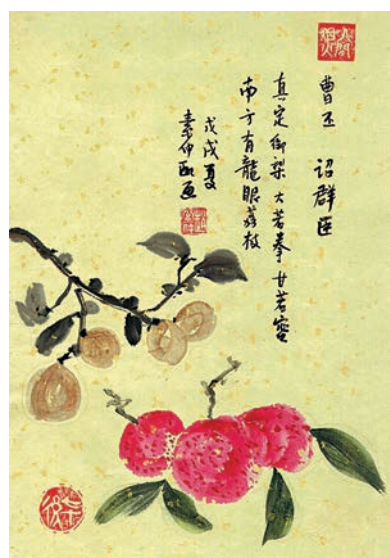 曹丕 詔群臣
真定御梨 大若拳 甘若蜜
南方有龍眼荔枝
戊戌夏
素仲 画